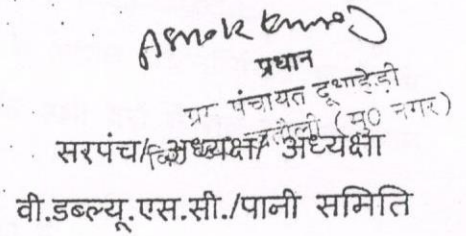 Ashok Kumar
प्रधान
ग्रा पंचायत दूधाहेड़ी
खतौली (मु० नगर)
सरपंच/अध्यक्ष/ अध्यक्षा
वी.डब्ल्यू.एस.सी./पानी समिति